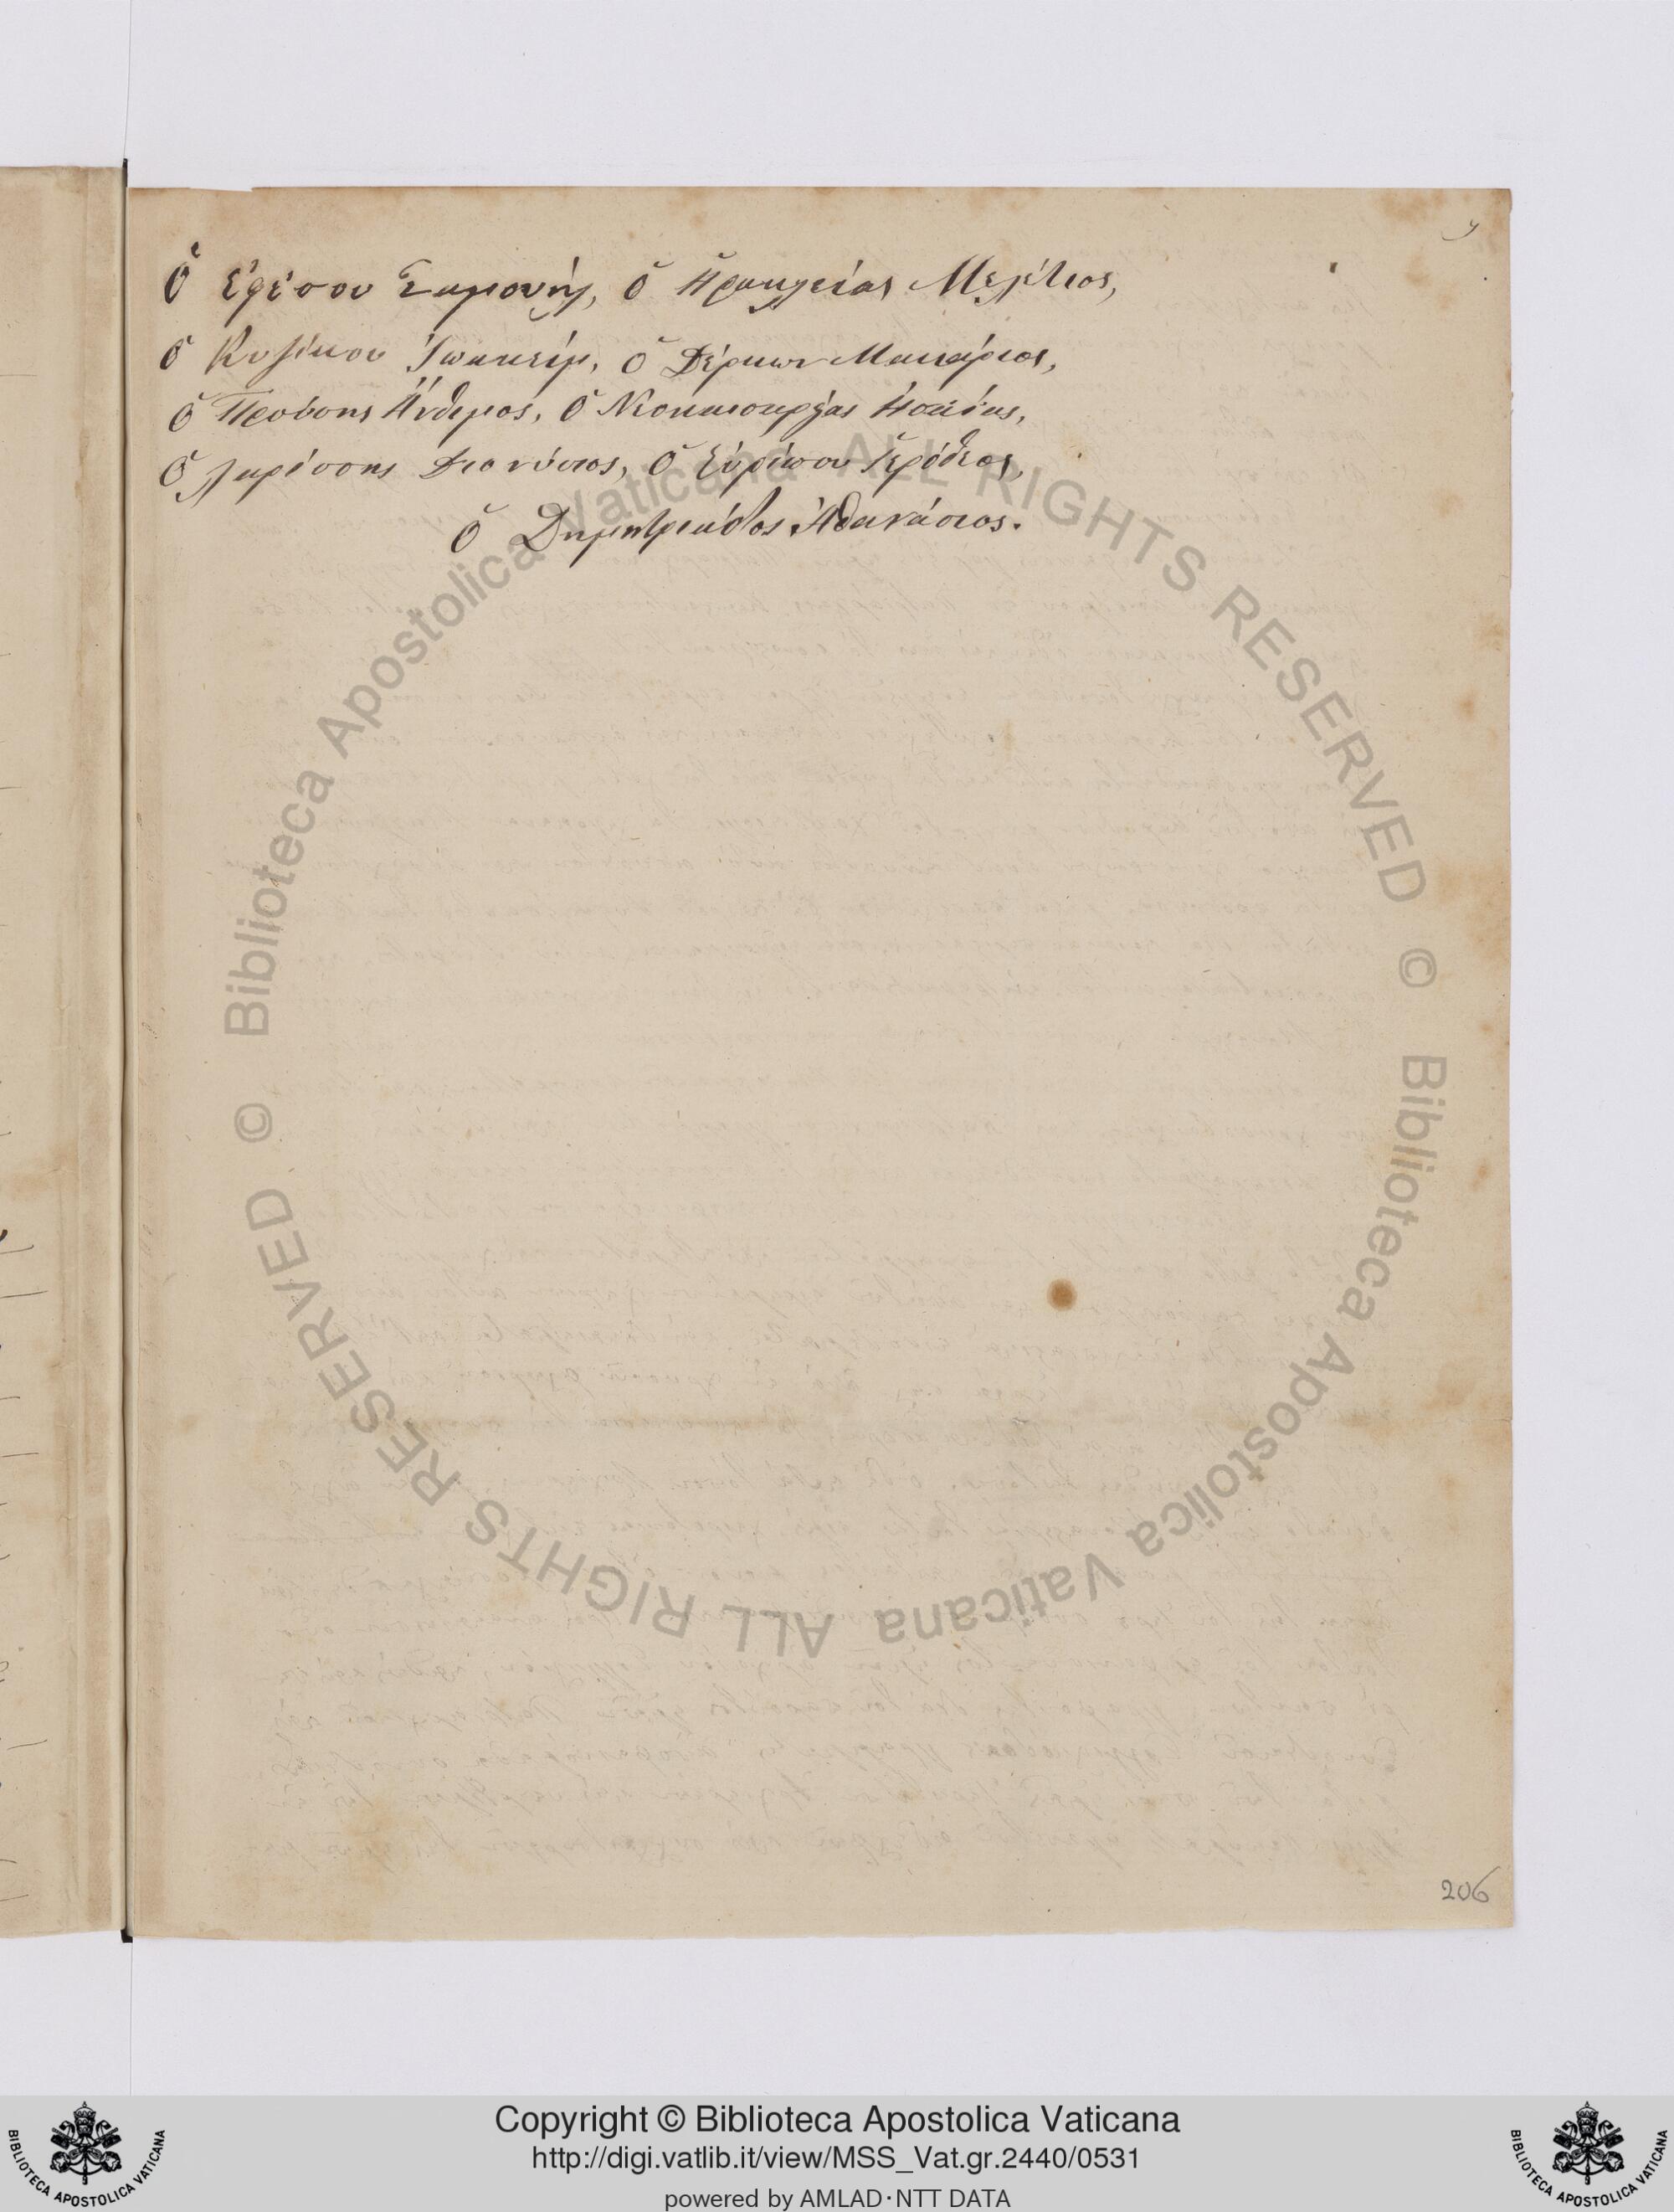 Ὁ Ἐφέσου Σαμουήλ, ὁ Ἡρακλείας Μελέτιος,
ὁ Κυζίκου Ἰωακείμ, ὁ Δέρκων Μακάριος,
ὁ Προύσης Ἄνθιμος, ὁ Νεοκαισαρείας Ἡσαΐας,
ὁ Λαρίσσης Διονύσιος, ὁ Εὐρίπου Ἱερόθεος,
ὁ Δημητριάδος Ἀθανάσιος.
206
© Biblioteca Apostolica Vaticana ALL RIGHTS RESERVED
© Biblioteca Apostolica Vaticana ALL RIGHTS RESERVED
Copyright © Biblioteca Apostolica Vaticana
http://digi.vatlib.it/view/MSS_Vat.gr.2440/0531
powered by AMLAD·NTT DATA
BIBLIOTECA APOSTOLICA VATICANA
BIBLIOTECA APOSTOLICA VATICANA